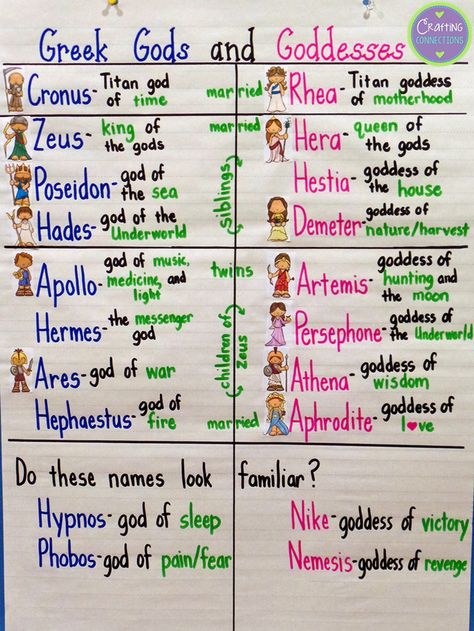 Crafting
CONNECTIONS
Greek Gods and Goddesses
Cronus- Titan god
of time
married
Rhea- Titan goddess
of motherhood
Zeus- king of
the gods
married
Hera- queen of
the gods
Poseidon- god of
the sea
siblings
Hestia- goddess of
the house
Hades- god of the
Underworld
Demeter- goddess of
nature/harvest
Apollo- god of music,
medicine, and
light
twins
Artemis- goddess of
hunting and
the moon
Hermes- the messenger
god
children of
Zeus
Persephone- goddess of
the Underworld
Ares- god of war
Athena- goddess of
wisdom
Hephaestus- god of
fire
married
Aphrodite- goddess of
l♥ve
Do these names look familiar?
Hypnos- god of sleep
Nike- goddess of victory
Phobos- god of pain/fear
Nemesis- goddess of revenge